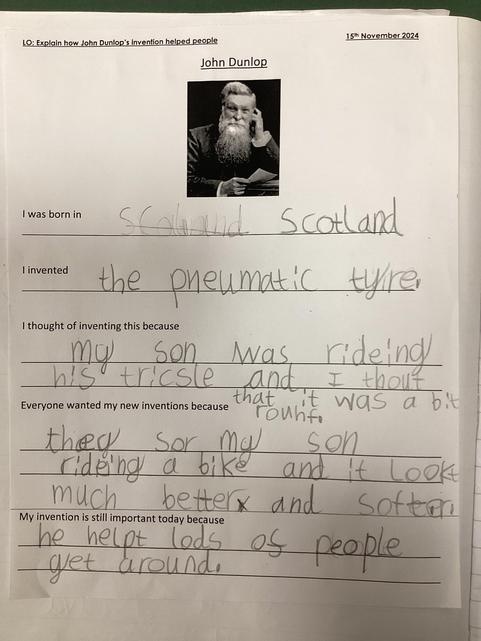 LO: Explain how John Dunlop's invention helped people 15th November 2024
John Dunlop
I was born in Scotland
I invented the pneumatic tyre.
I thought of inventing this because
my son was rideing
his tricsle and I thout
that it was a bit
rouhf.
Everyone wanted my new inventions because
they sor my son
rideing a bike and it look
much better and softer.
My invention is still important today because
he helpt lods of people
get around.